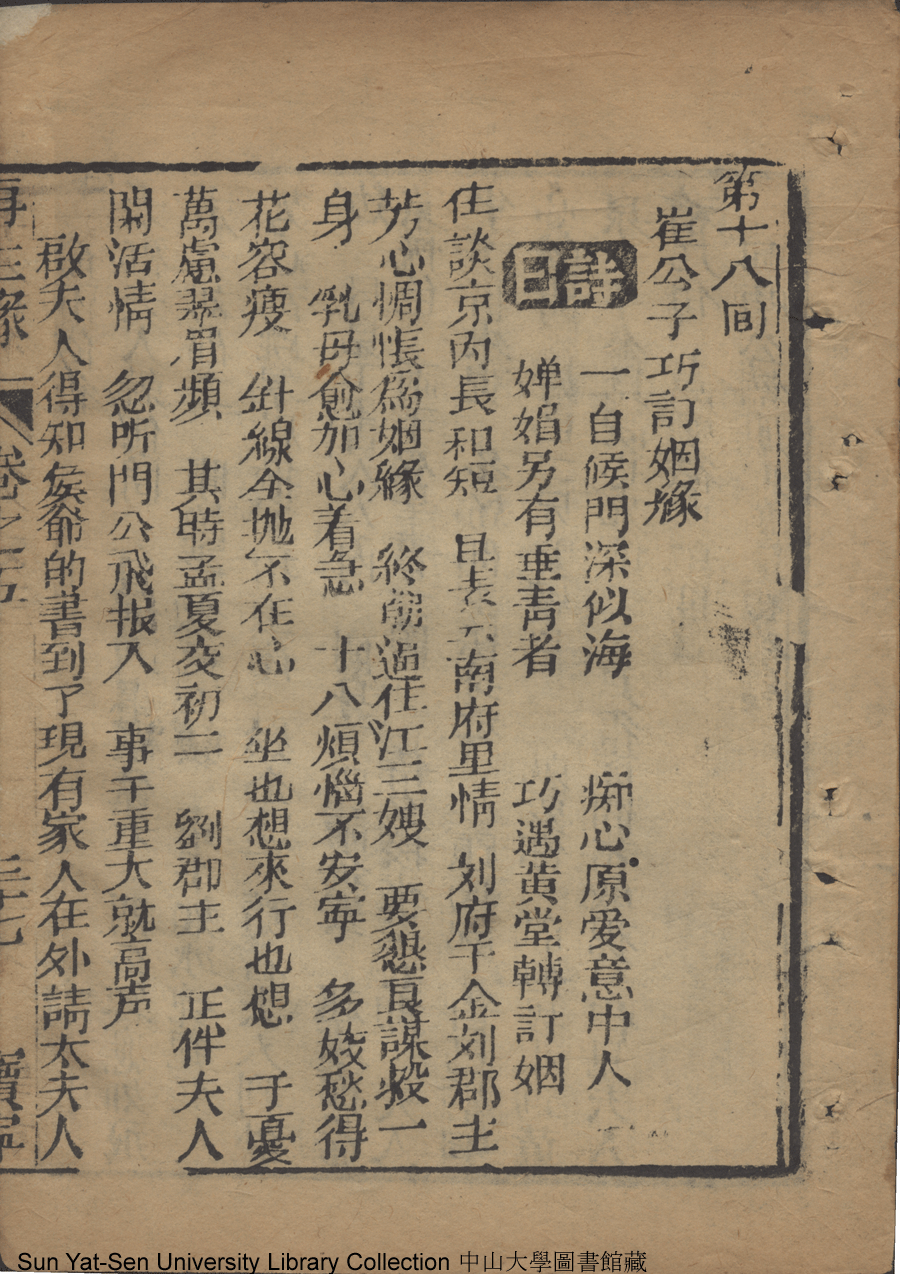 第十八回
崔公子巧訂姻緣
詩曰
一自候門深似海 痴心原爱意中人
婵娟另有垂青者 巧遇黄堂轉訂姻
住談京内長和短 且表云南府里情 刘府千金刘郡主
芳心惆悵為姻緣 終朝逼住江三嫂 要懇良謀救一
身 乳母愈加心着急 十八煩惱不安寧 多姣愁得
花容瘦 針線全抛不在心 坐也想來行也想 千憂
萬慮翠眉頻 其時孟夏交初二 劉郡主 正伴夫人
閑活情 忽听門公飛报入 事干重大就高声
啟夫人得知矦爺的書到了現有家人在外請太夫人
再生緣 卷之五 三十七 寶寧
Sun Yat-Sen University Library Collection 中山大學圖書館藏